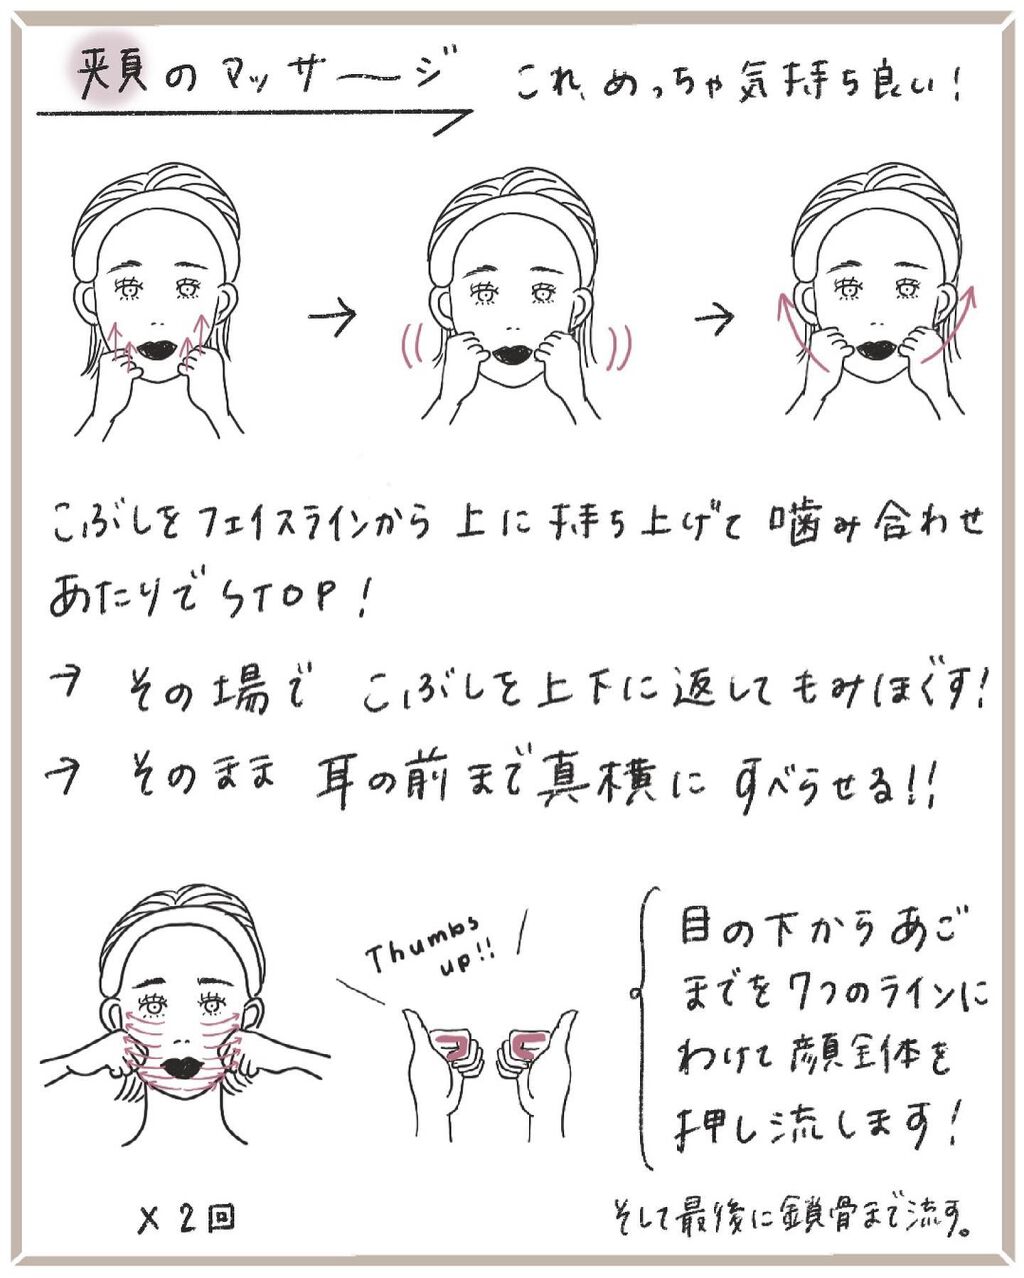 頬のマッサ〜ジ
これ、めっちゃ気持ち良い!
こぶしをフェイスラインから上に持ち上げて噛み合わせ
あたりでSTOP!
→ その場で こぶしを上下に返してもみほぐす!
→ そのまま 耳の前まで真横にすべらせる!!
Thumbs
up!!
目の下からあご
までを7つのラインに
わけて顔全体を
押し流します!
×2回
そして最後に鎖骨まで流す。